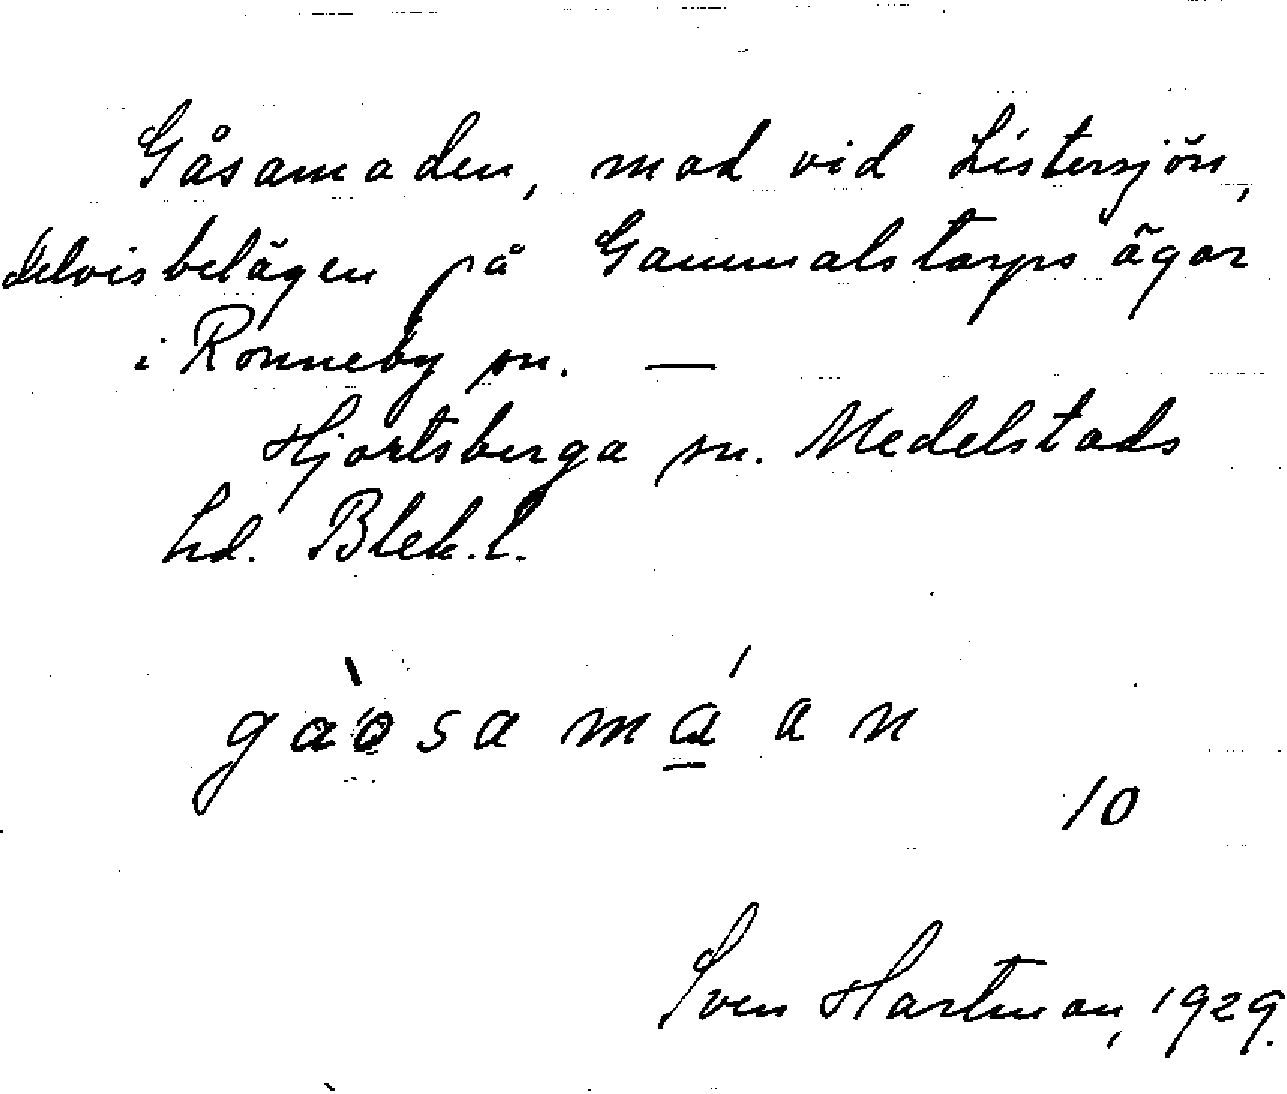 Gåsamaden, mad vid Listersjön,
delvis belägen på Gammalstorps ägor
i Ronneby sn. —
Hjortsberga sn. Medelstads
hd. Blek. l.
gàòsa má̱ a n
10
Sven Hartman, 1929.